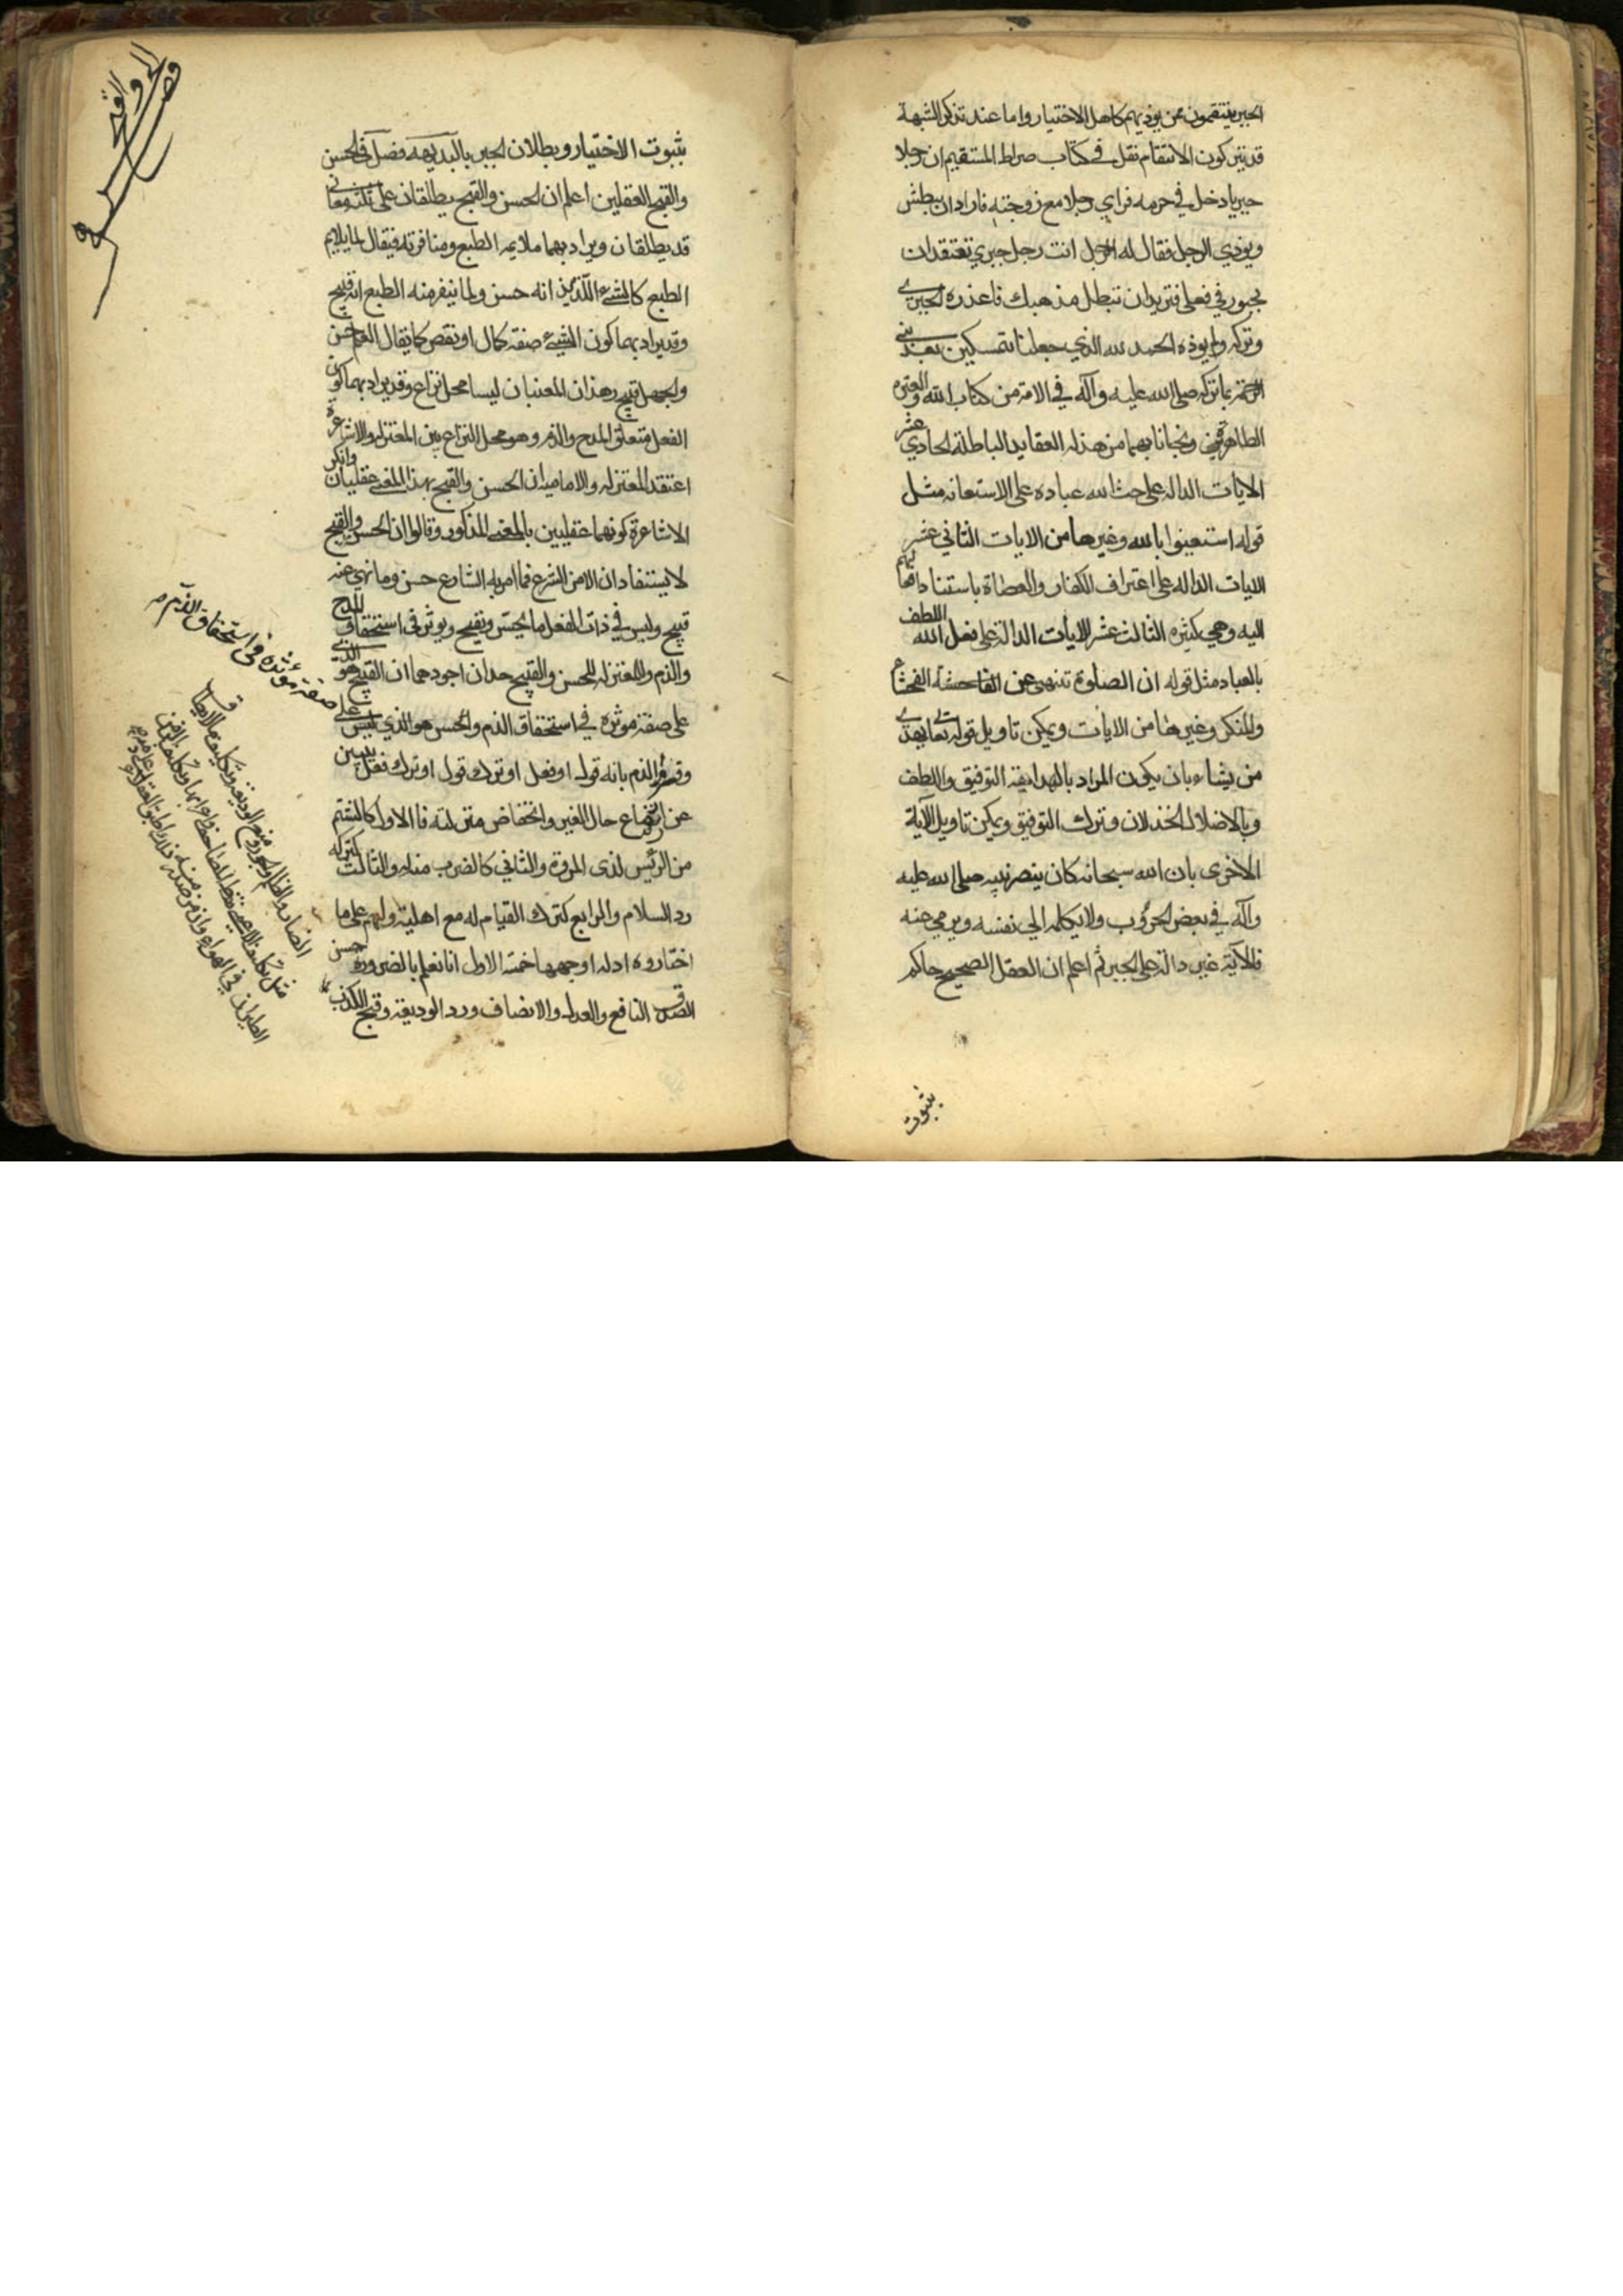 الجبر ينتقمون ممن يوذيهم كاهل الاختيار واما عند تذكر الشبهة
قد يتركون الانتقام نقل في كتاب صراط المستقيم ان رجلا
جبريا دخل في حرمه فراي رجلا مع زوجته فاراد ان يبطش
ويوذي الرجل فقال له الرجل انت رجل جبري تعتقد ان
مجبور في فعلي فتريد ان تبطل مذهبك فاعذره الجبري
وتركه ولم يوذه الحمد لله الذي جعلنا متمسكين بعد نبي
الرحمة بما تركه صلى الله عليه وآله في الامة من كتاب الله والعترة
الطاهرة ونجانا بهما من هذه العقايد الباطلة الحادي عشر
الايات الدالة على حث الله عباده على الاستعانة مثل
قوله استعينوا بالله وغيرها من الايات الثاني عشر
الايات الداله على اعتراف الكفار والعصاة باستناد افعالهم
اليه وهي كثيره الثالث عشر الايات الدالة على فعل الله اللطف
بالعباد مثل قوله ان الصلوة تنهى عن الفحشاء
والمنكر وغيرها من الايات ويمكن تاويل قوله تعالى يهدي
من يشاء بان يكون المراد بالهداية التوفيق واللطف
وبالاضلال الخذلان وترك التوفيق ويمكن تاويل الآية
الاخرى بان الله سبحانه كان ينصر نبيه صلى الله عليه
وآله في بعض الحروب ولا يكله الى نفسه ويرمي عنه
فالآية غير دالة على الجبر ثم اعلم ان العقل الصحيح حاكم
بثبوت
بثبوت الاختيار وبطلان الجبر بالبديهه فصل في الحسن
والقبح العقلين اعلم ان الحسن والقبح يطلقان على ثلثة معاني
قد يطلقان ويراد بهما ملايمه الطبع ومنافرته فيقال لما يلايم
الطبع كالشيء اللذيذ انه حسن ولما ينفر منه الطبع انه قبيح
وقد يراد بهما كون الشيء صفة كمال او نقص كما يقال العلم حسن
والجهل قبيح وهذان المعنيان ليسا محل نزاع وقد يراد بهما كون
الفعل متعلق المدح والذم وهو محل النزاع بين المعتزله والاشاعرة
اعتقد المعتزله والاماميه ان الحسن والقبح بهذا المعنى عقليان وانكر
الاشاعرة كونهما عقليين بالمعنى المذكور وقالوا ان الحسن والقبح
لا يستفادان الا من الشرع فما امر به الشارع حسن وما نهي عنه
قبيح وليس في ذات الفعل ما يحسن ويقبح ويوثر في استحقاق المدح
والذم وللمعتزله للحسن والقبيح حدان اجودهما ان القبيح هو الذي
على صفة موثره في استحقاق الذم والحسن هو الذي ليس على
صفة موثره في استحقاق الذم
وفسروا الذم بانه قول او فعل او ترك قول او ترك فعل يبين
عن اتضاع حال الغير وانخفاض منزلته فالاول كالشتم
من الرئيس لذى المروة والثاني كالضرب منه والثالث كتركه
رد السلام والرابع كترك القيام له مع اهليته ولهم على ما
اختاروه ادلة اوجهها خمسة الاول انا نعلم بالضرورة حسن
الصدق النافع والعدل والانصاف ورد الوديعة وقبح الكذب
الضار والظلم والجور ومنع الوديعة وتكليف ما لا يطاق